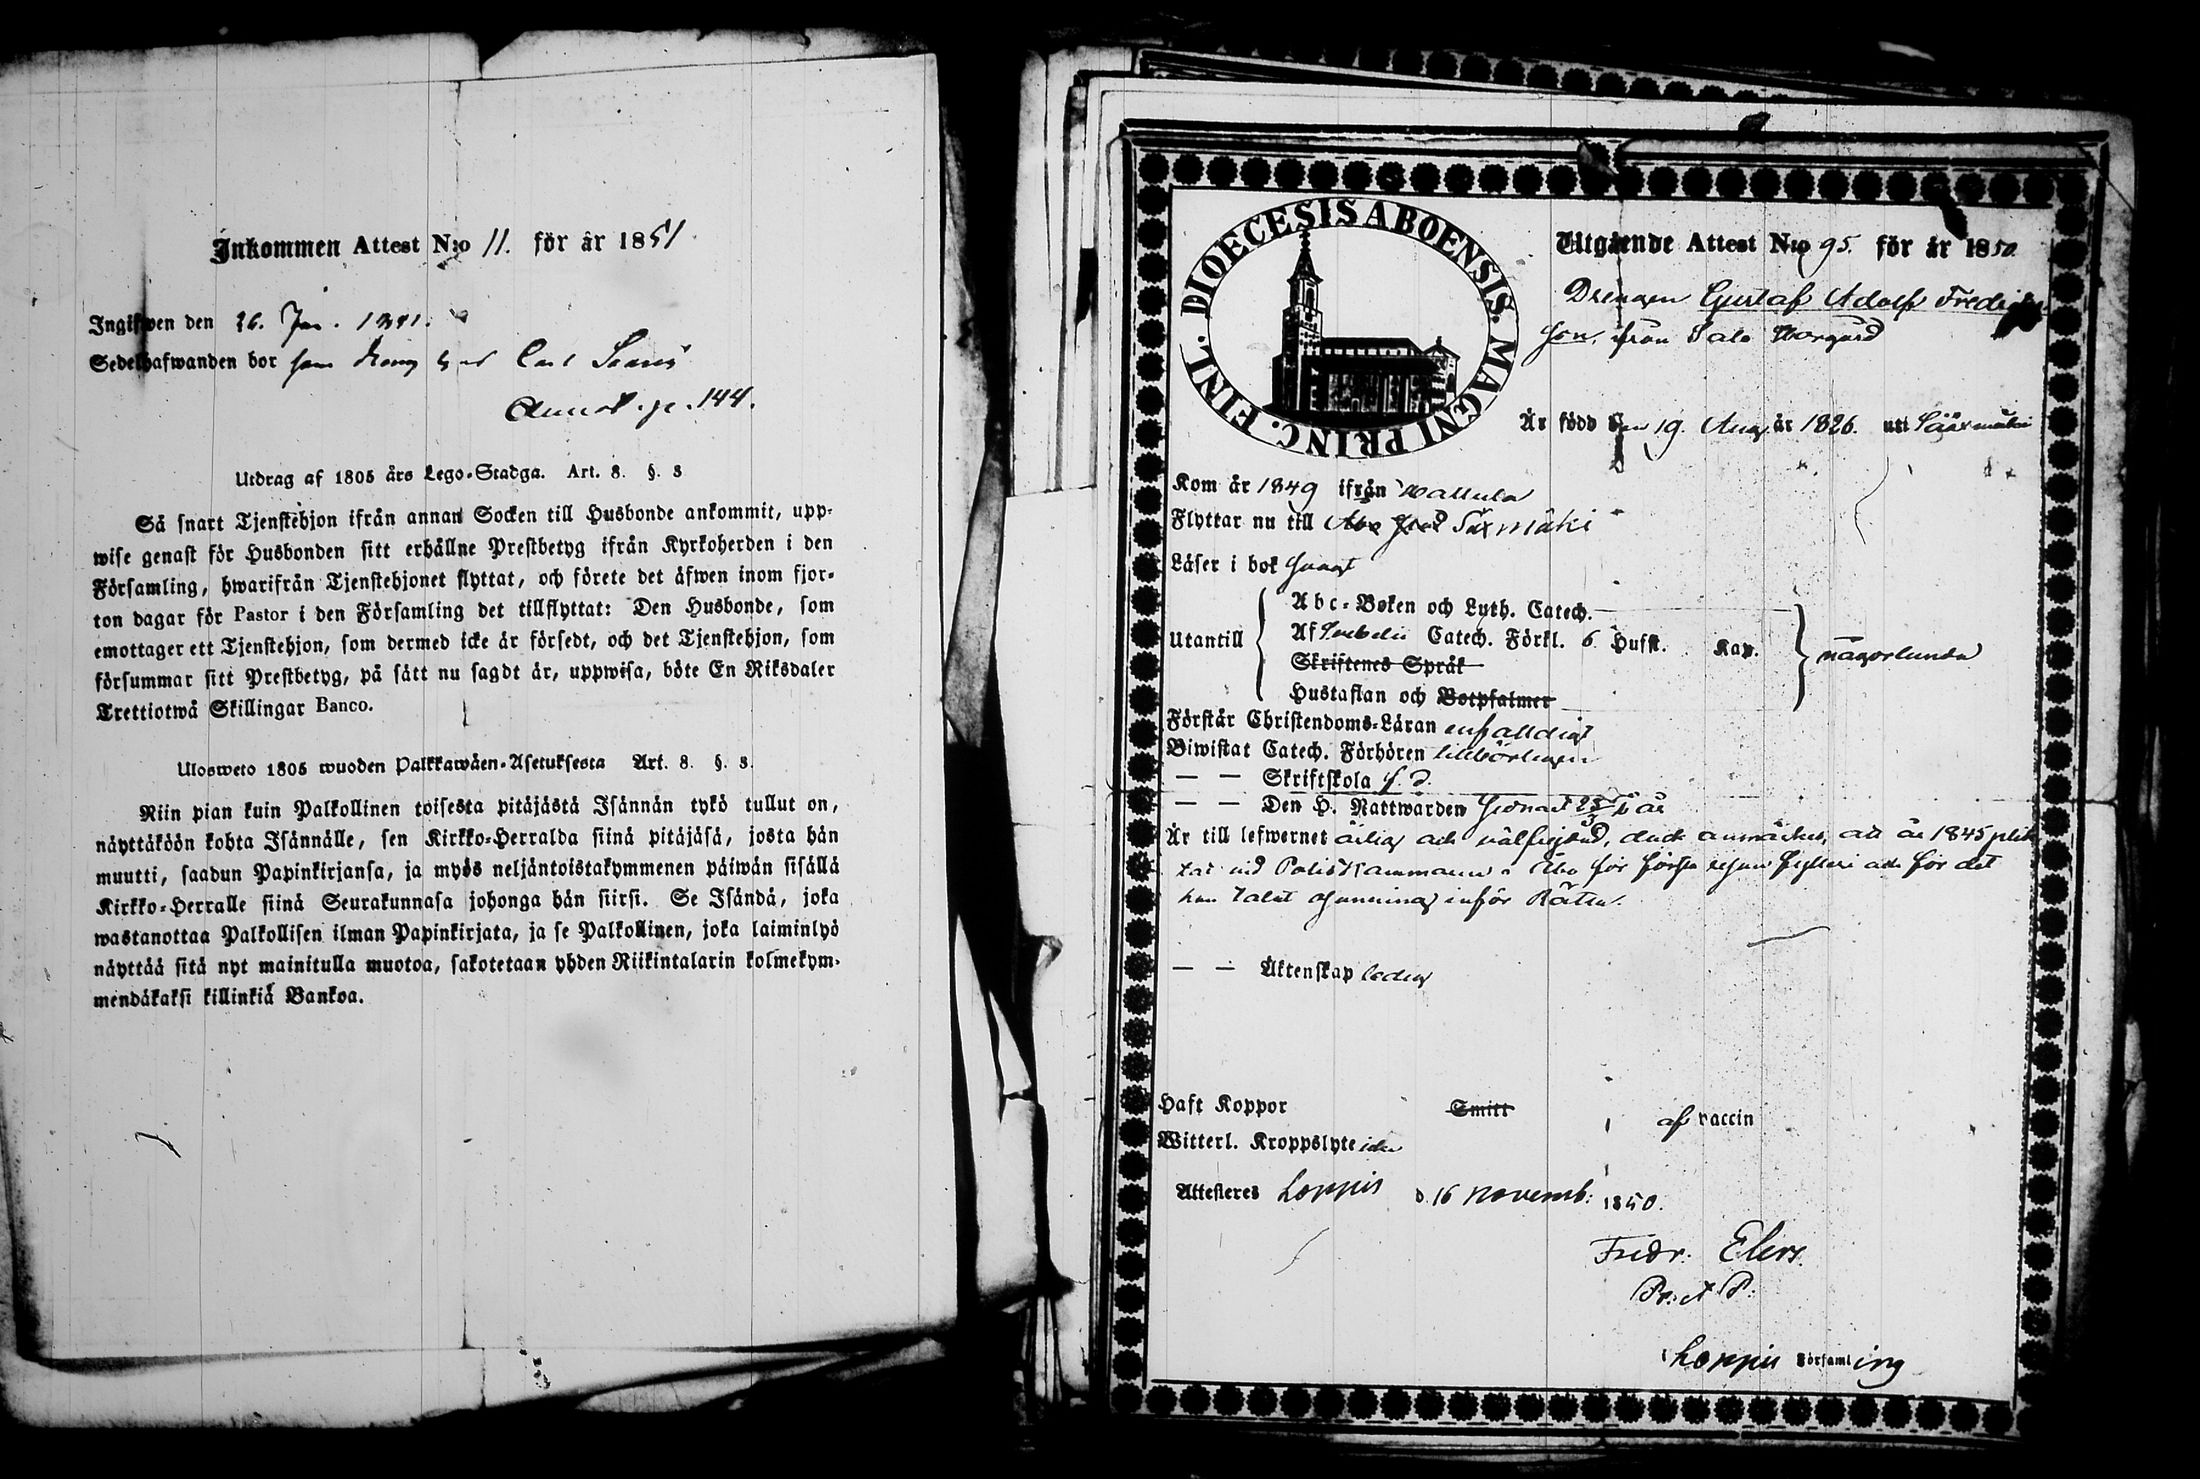 Inkommen Attest N:o 11. för år 1851
Ingifwen den 26. Jan. 1851.
Sedelhafwanden bor hos
Annot. p. 144.
Utdrag af 1805 års Lego-Stadga. Art. 8. §. 8
Så snart Tjenstehjon ifrån annan Socken till Husbonde ankommit, upp-
wise genast för Husbonden sitt erhållne Prestbetyg ifrån Kyrkoherden i den
Församling, hwarifrån Tjenstehjonet flyttat, och förete det äfwen inom fjor-
ton dagar för Pastor i den Församling det tillflyttat: Den Husbonde, som
emottager ett Tjenstehjon, som dermed icke är försedt, och det Tjenstehjon, som
försummar sitt Prestbetyg, på sätt nu sagdt är, uppwisa, böte En Riksdaler
Trettiotwå Skillingar Banco.
Ulosweto 1805 wuoden Palkkawäen-Asetuksesta Art. 8. §. 8.
Niin pian kuin Palkollinen toisesta pitäjästä Isännän tykö tullut on,
näyttäköön kohta Isännälle, sen Kirkko-Herralda siinä pitäjäsä, josta hän
muutti, saadun Papinkirjansa, ja myös neljäntoistakymmenen päiwän sisällä
Kirkko-Herralle siinä Seurakunnasa johonga hän siirsi. Se Isändä, joka
wastanottaa Palkollisen ilman Papinkirjata, ja se Palkollinen, joka laiminlyö
näyttää sitä nyt mainitulla muotoa, sakotetaan yhden Riikintalarin kolmekym-
mendäkaksi killinkiä Bankoa.
DIOECESIS ABOENSIS. MAGNI PRINC. FINL.
Utgående Attest N:o 95. för år 1850
Drengen Gustaf Adolf Fredriks
son, från Salo
Är född den 19. Aug. år 1826. uti Sääxmäki
Kom år 1849 ifrån Hattula
Flyttar nu till Säxmäki
Läser i bok svagt
Utantill
Abc-Boken och Luth. Catech.
Af Svebelii Catech. Förkl. 6 Hufst. Kap.
Skriftenes Språk
Hustaflan och Botpsalmer
någorlunda
Förstår Christendoms-Läran enfalldigt
Biwistat Catech. Förhören tillbörligen
— — Skriftskola
— — Den H. Nattwarden
Är till lefwernet ärlig och välfrejdad, dock anmärkes, att år 1845 plik
tat vid Polis Kammaren i Åbo för första resans fylleri och för det
han talat osanning inför Rätta.
— — Äktenskap ledig
Haft Koppor Smitt af vaccin
Witterl. Kroppslyte icke
Attesteres Loppis d. 16 novemb: 1850.
Fredr. Elers.
i Loppis Församling